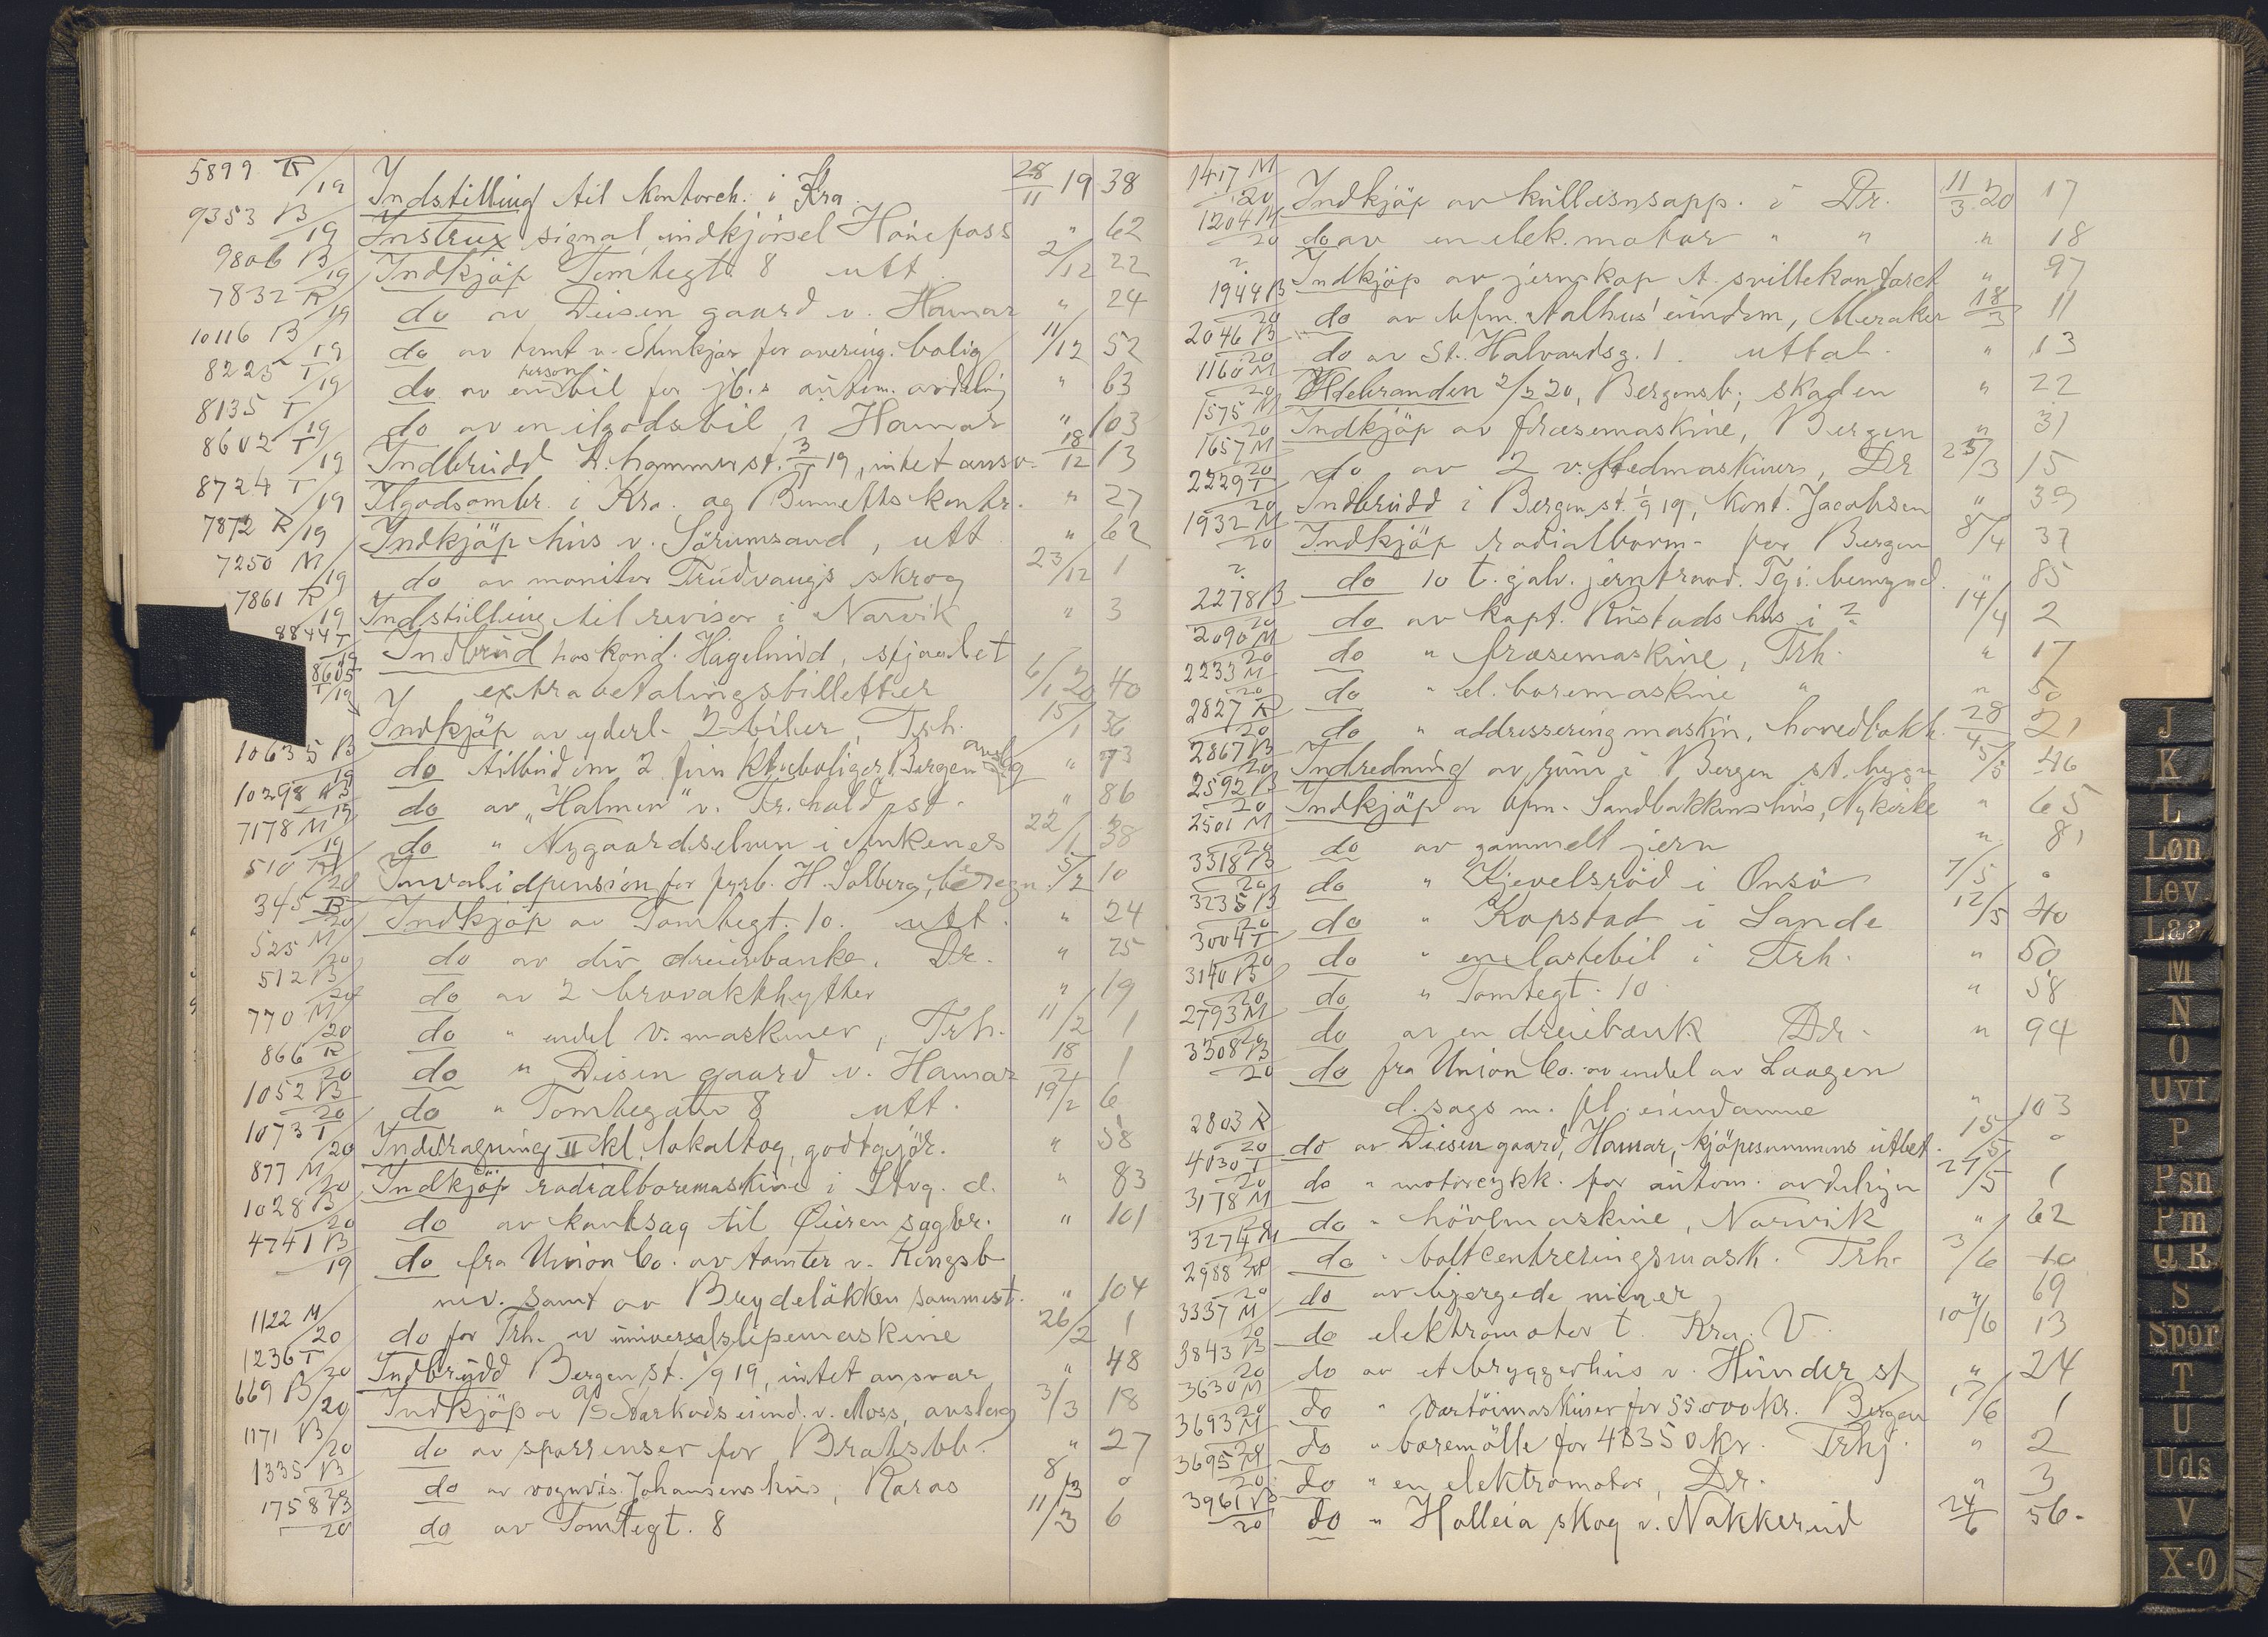 5899 R/19 Indstilling til kontorch. i Kra. 28/11 19 38
9353 B/19 Instrux signal indkjörsel Hönefoss " 62
9806 B/19 Indkjöp Tomtegt. 8 utt. 2/12 22
7832 R/19 do av Disen gaard v. Hamar " 24
10116 B/19 do av tomt v. Stenkjær for overing. bolig 11/12 52
8225 T/19 do av en personbil for jb.s autom. avdeling " 63
8135 T/19 do av en ilgodsbil i Hamar " 103
8602 T/19 Indbrudd L.hammer st. 3/ 19, intet ansv. 18/12 13
8724 T/19 Ilgodsombr. i Kra. og Bennetts kontr. " 27
7872 R/19 Indkjöp hus v. Sörumsand, utt. " 62
7250 M/19 do av monitor Trudvang's skrog 23/12 1
7861 R/19 Indstilling til revisor i Narvik " 3
8844 T/19 Indbrud hos kond. Hagelund, stjaalet
8605 T/19 extrabetalingsbilletter 6/1 20 40
Indkjöp av yderl. 2 biler, Trh. 15/1 36
10635 B/19 do tilbud om 2 funktboliger, Bergen avslag " 73
10298 B/19 do av "Halmen" v. Fr.hald st. " 86
7178 M/19 do " Nygaardselven i Ankenes 22/1 38
510 R/20 Invalidpension for fyrb. H. Solberg, beregn. 5/2 10
345 B/20 Indkjöp av Tomtegt. 10. utt. " 24
525 M/20 do av div dreiebænke, Dr. " 25
512 B/20 do av 2 brovakthytter " 19
770 M/20 do " endel v. maskiner, Trh. 11/2 1
866 R/20 do " Disen gaard v. Hamar 18/2 1
1052 B/20 do " Tomtegaten 8 utt. 19/2 6
1073 T/20 Inddragning II kl. lokaltog, godtgjör. " 58
877 M/20 Indkjöp radialboremaskine i Stvg. d. " 83
1028 B/20 do av kantsag til Öieren sagbr. " 101
4741 B/19 do fra Union Co. av tomter v. Kongsb
niv. samt av Brydeløkken sammest. " 104
1122 M/20 do for Trh. av universalslipemaskine 26/2 1
1236 T/20 Indbrudd Bergen st. 1/9 19, intet ansvar " 48
669 B/20 Indkjöp av A/S Starkads eiend. v. Moss, avslag 3/3 18
1171 B/20 do av sporrenser for Bratsbb. " 27
1335 B/20 do av vognvis. Johansens hus, Röros 8/3 0
1758 B/20 do av Tomtegt. 8 11/3 6
1417 M/20 Indkjöp av kullæsnsapp. i Dr. 11/3 20 17
1204 M/20 do av en elek. motor " " " 18
? Indkjöp av jernskap t. svillekontoret " 97
1944 B/20 do av bfm. Aalhus' eiendom, Meraker 18/3 11
2046 B/20 do av St. Halvardsg. 1. uttal. " 13
1160 M/20 Ildebranden 2/2 20, Bergensb; skaden " 22
1575 M/20 Indkjöp av fræsemaskine, Bergen " 31
1657 M/20 do av 2 v.stedmaskiner, Dr 25/3 15
2229 T/20 Indbrudd i Bergen st. 1/9 19, Kont. Jacobsen " 39
1932 M/20 Indkjöp radialborm. for Bergen 8/4 37
? do 10 t. galv. jerntraad. Tgi. bemynd. " 85
2278 B/20 do av kapt. Rustads hus i ? 14/4 2
2090 M/20 do " fræsemaskine, Trh. " 17
2233 M/20 do " el. boremaskine " " 50
2827 R/20 do " addressering maskin, hovedbokh. 28/4 21
2867 B/20 Indredning av rum i Bergen st. bygn 5/5 46
2592 B/20 Indkjöp av bfm. Sandbakkens hus, Nykirke " 65
2501 M/20 do av gammelt jern " 81
3318 B/20 do " Kjevelsröd i Onsö 7/5 0
3235 B/20 do " Kopstad i Sande 12/5 40
3004 T/20 do " en lastebil i Trh. " 50
3140 B/20 do " Tomtegt. 10 " 58
2793 M/20 do av en dreiebænk Dr. " 94
3308 B/20 do fra Union Co. av endel av Laagen
d. sags m. fl. eiendomme " 103
2803 R/20 do av Disen gaard, Hamar, kjöpesummens utbet. 15/5 0
4030 T/20 do " motorcykk. for autom. avdelingen 27/5 1
3178 M/20 do " hövlmaskine, Narvik " 62
3274 M/20 do " boltcentreringsmask. Trh. 3/6 10
2988 M/20 do av bjergede miner " 69
3337 M/20 do elektromotor t. Kra. V. 10/6 13
3843 B/20 do av et bryggerhus v. Hunder st " 24
3630 M/20 do " værtöimaskiner for 55.000 kr. Bergen 17/6 1
3693 M/20 do " boremölle for 48350 kr. Trhj. " 2
3695 M/20 do " en elektromotor, Dr. " 3
3961 B/20 do " Holleia skog v. Nakkerud 24/6 56.
J
K
L
Løn
Lev.
Laa
M
N
O
Uvf
P
Psn
Pm
Q R
S
Spor
T
U
Uds
V
X-Ø